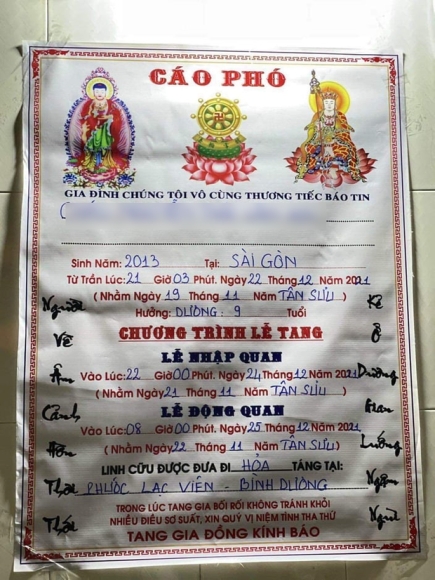 CÁO PHÓ
GIA ĐÌNH CHÚNG TÔI VÔ CÙNG THƯƠNG TIẾC BÁO TIN
Sinh Năm: 2013 Tại: SÀI GÒN
Từ Trần Lúc: 21 Giờ 03 Phút. Ngày 22 Tháng 12 Năm 2021
( Nhằm Ngày 19 Tháng 11 Năm TÂN SỬU )
Hưởng: DƯƠNG: 9 Tuổi
CHƯƠNG TRÌNH LỄ TANG
LỄ NHẬP QUAN
Vào Lúc: 22 Giờ 00 Phút. Ngày 24 Tháng 12 Năm 2021
( Nhằm Ngày 21 Tháng 11 Năm TÂN SỬU )
LỄ ĐỘNG QUAN
Vào Lúc: 08 Giờ 00 Phút. Ngày 25 Tháng 12 Năm 2021
( Nhằm Ngày 22 Tháng 11 Năm TÂN SỬU )
LINH CỮU ĐƯỢC ĐƯA ĐI HỎA TÁNG TẠI:
PHƯỚC LẠC VIÊN - BÌNH DƯƠNG
TRONG LÚC TANG GIA BỐI RỐI KHÔNG TRÁNH KHỎI
NHIỀU ĐIỀU SƠ SUẤT, XIN QUÝ VỊ NIỆM TÌNH THA THỨ
TANG GIA ĐỒNG KÍNH BÁO
Người
Về
Âm
Cảnh
Hồn
Thời
Thổi
Kẻ
Ở
Dương
Gian
Luống
Ngậm
Ngùi